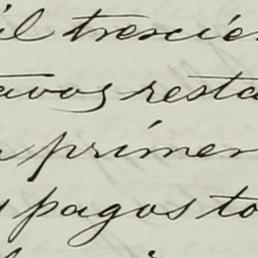 il trescie
avos resta
primer
pagos to